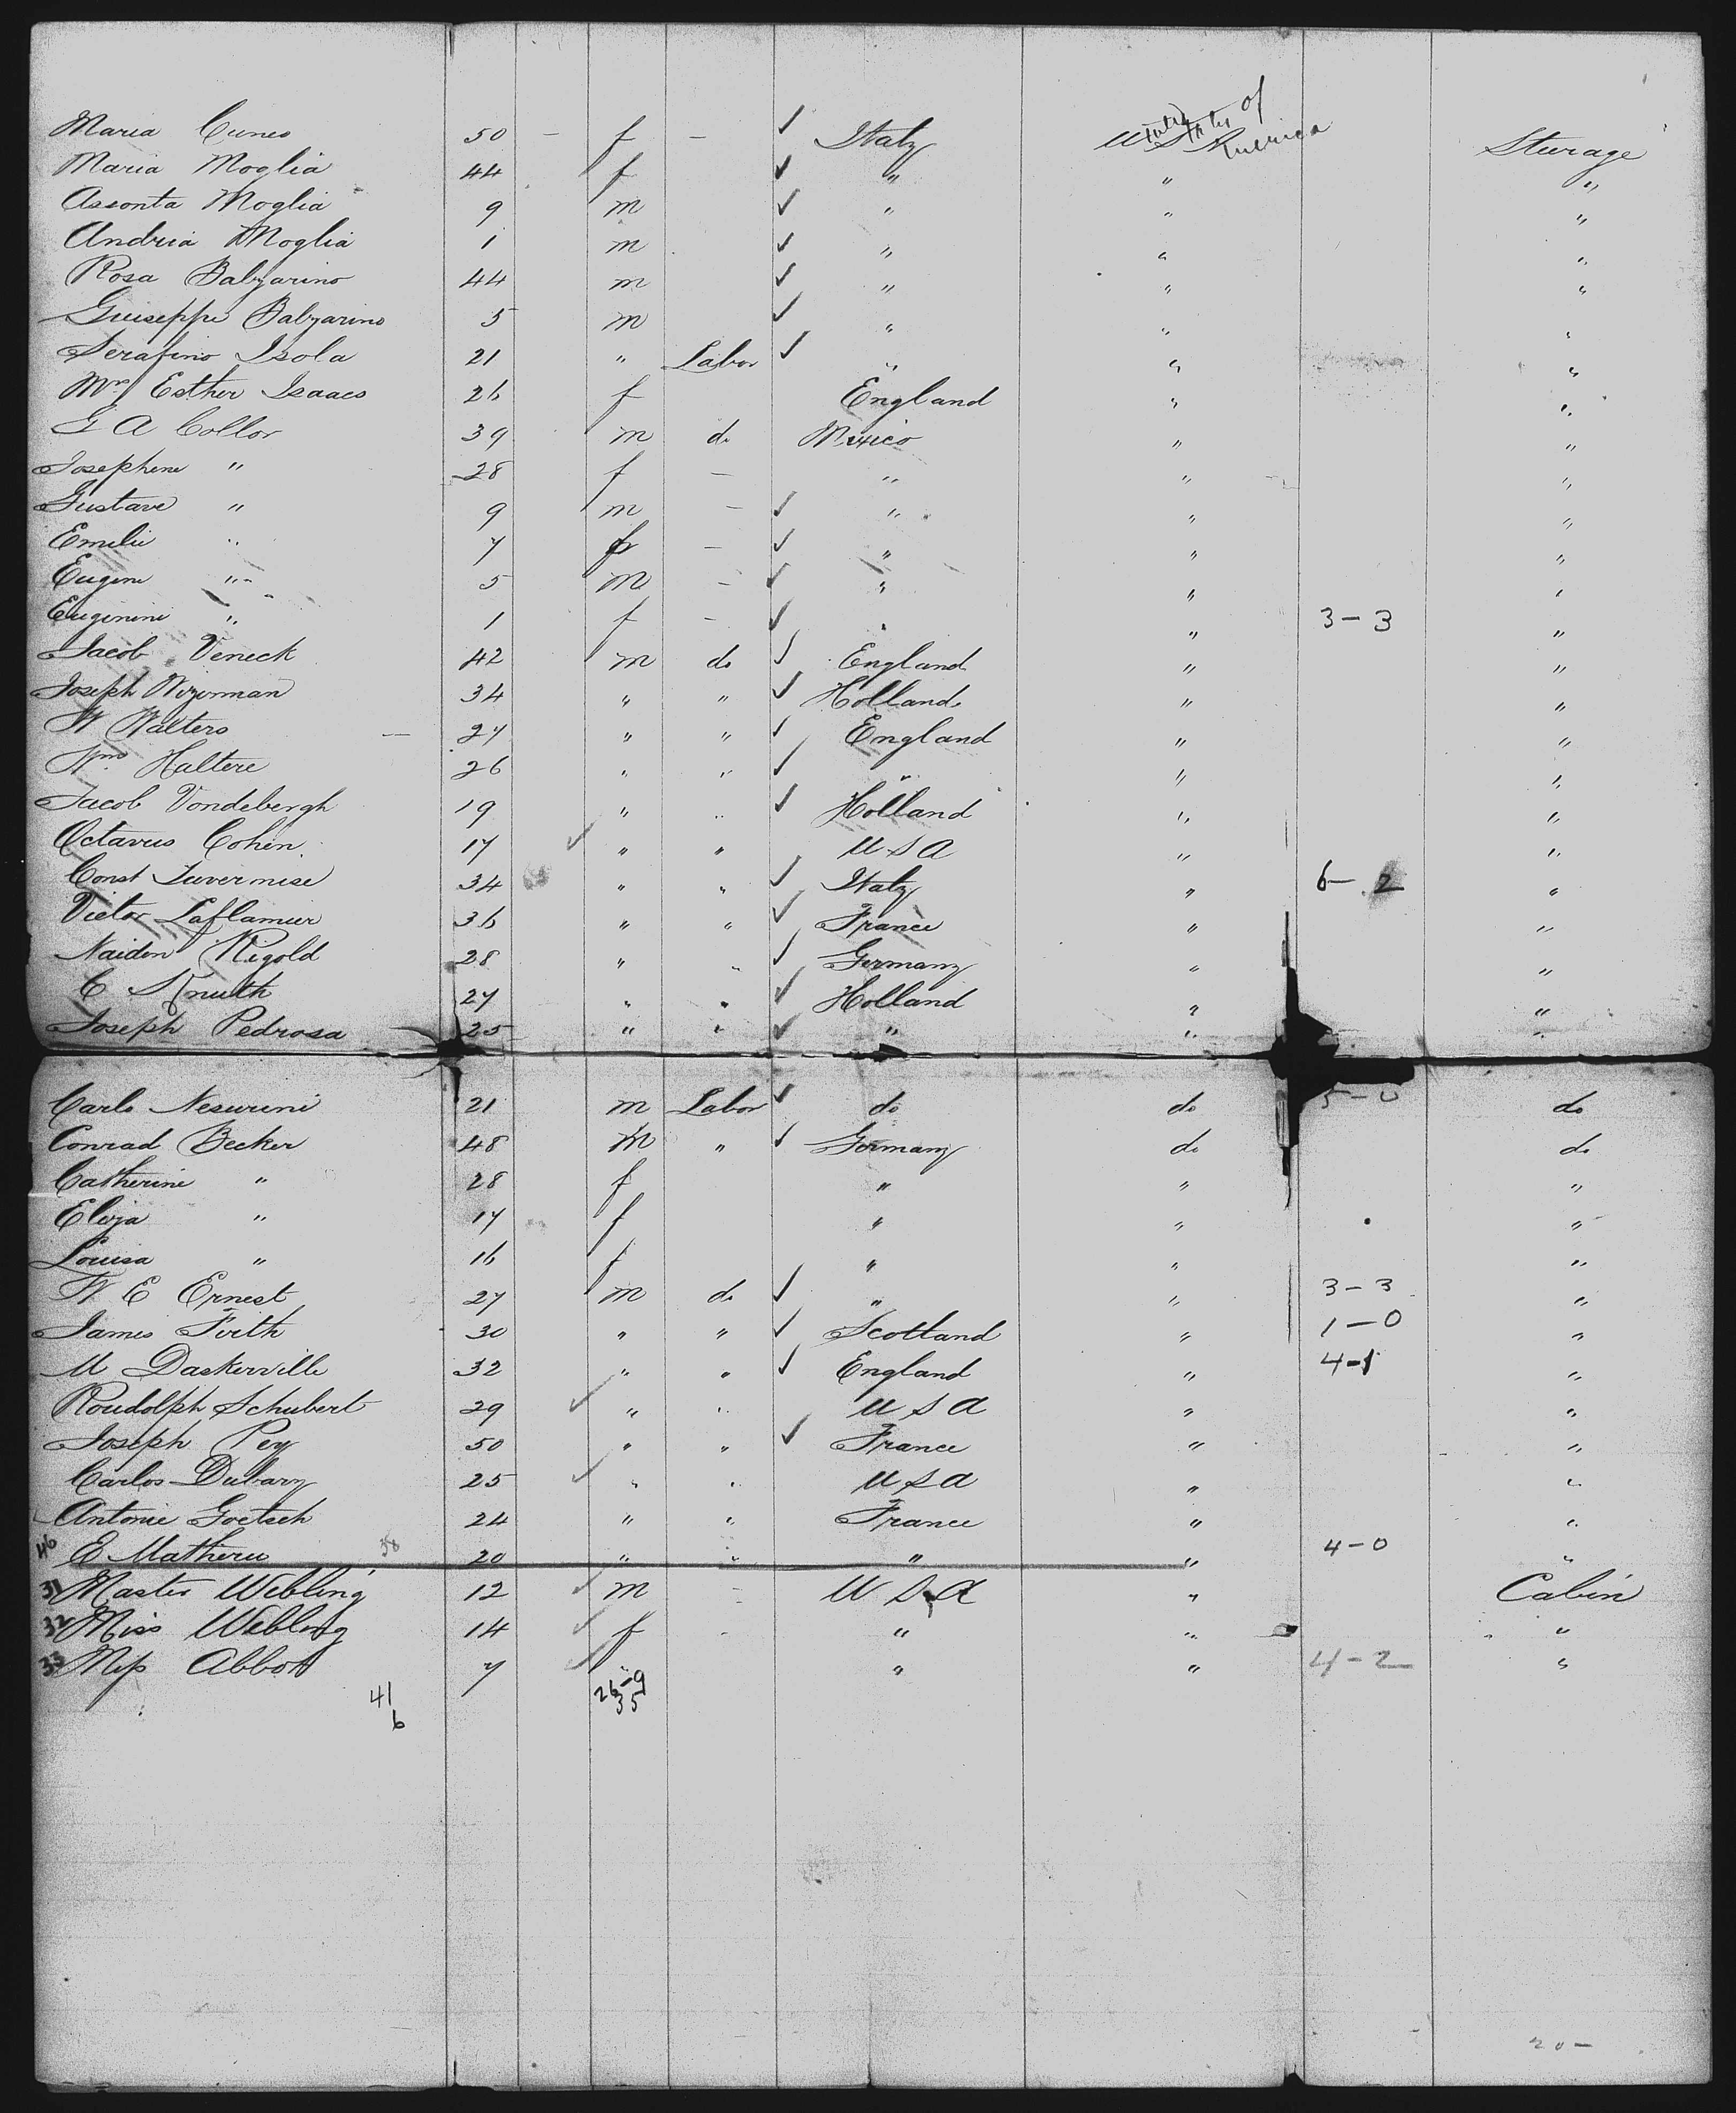 Maria Cuneo 50 — f — ✓ Italy United States of America Steerage
Maria Moglia 44 f ✓ " " "
Assonta Moglia 9 m ✓ " " "
Andrea Moglia 1 m ✓ " " "
Rosa Balzarino 44 m ✓ " " "
Guiseppe Balzarino 5 m ✓ " " "
Serafino Isola 21 " Labor ✓ " " "
Mrs Esther Isaacs 26 f England " "
G A Collor 39 m do Mexico " "
Josephine " 28 f — " " "
Gustave " 9 m — ✓ " " "
Emilie " 7 f — ✓ " " "
Eugene " 5 m — ✓ " " "
Euginini " 1 f — ✓ " " 3-3 "
Jacob Veneck 42 m do ✓ England " "
Joseph Wizerman 34 " " ✓ Holland " "
W Walters — 27 " " ✓ England " "
Wm Haltere 26 " " ✓ " " "
Jacob Vondebergh 19 " " ✓ Holland " "
Octavus Cohen 17 ✓ " " U S A " "
Const Luvermise 34 " " ✓ Italy " 6-2 "
Victor Laflamier 36 " " ✓ France " "
Naidon Rigold 28 " " ✓ Germany " "
C Knuth 27 " " ✓ Holland " "
Joseph Pedrosa 25 " " ✓ " " "
Carlo Nesurini 21 m Labor ✓ do do 5-0 do
Conrad Becker 48 m " ✓ Germany do do
Catherine " 28 f " " "
Eliza " 17 f " " "
Louisa " 16 f " " "
W E Ernest 27 m do ✓ " " 3-3 "
James Firth 30 " " ✓ Scotland " 1-0 "
M Daskerville 32 " " ✓ England " 4-1 "
Roudolph Schubert 29 ✓ " " U S A " "
Joseph Pey 50 " " ✓ France " "
Carlos Dubary 25 ✓ " " U S A " "
Antonie Goetsch 24 " " France " "
46 E Matheru 38 20 " " " " 4-0 "
31 Master Webling 12 ✓ m - U S A " Cabin
32 Miss Webling 14 ✓ f - " " "
33 Miss Abbott 7 ✓ " " " 4-2 "
41 26-9
6 35
20-